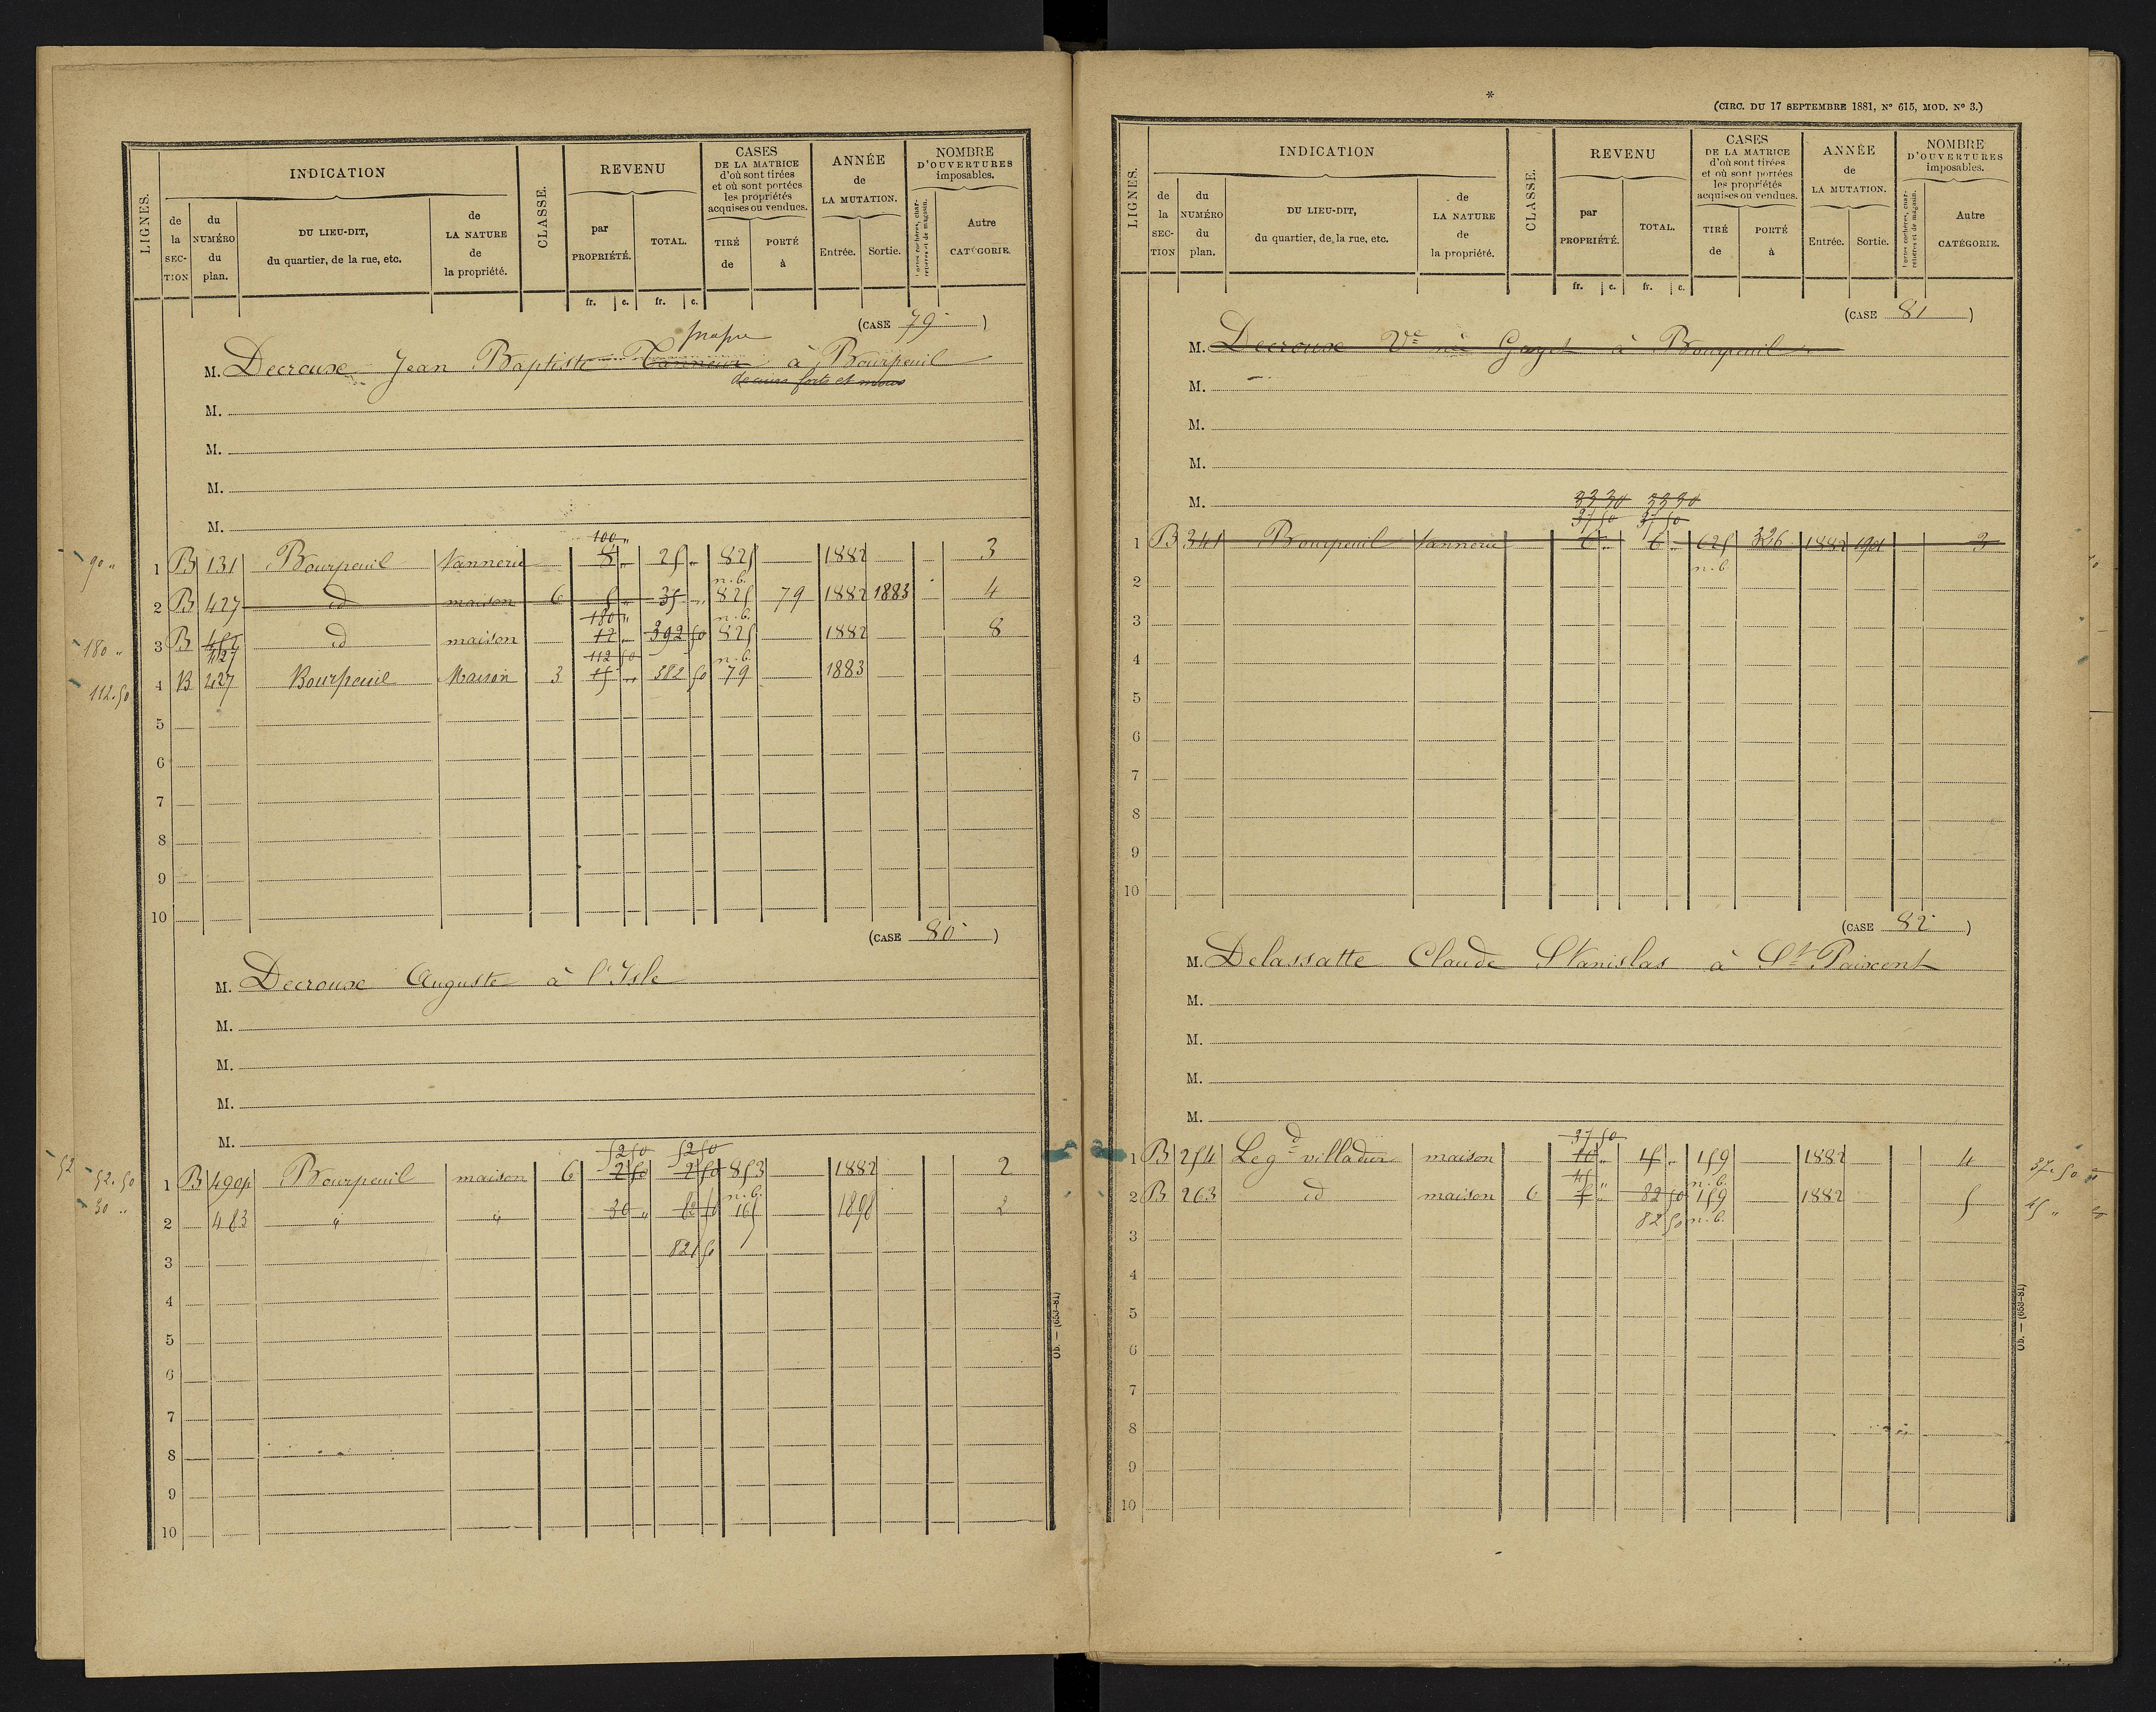 INDICATION
CLASSE.
REVENU
CASES
DE LA MATRICE
d'où sont tirées
et où sont portées
les propriétés
acquises ou vendues.
ANNÉE
de
LA MUTATION.
NOMBRE
D'OUVERTURES
imposables.
LIGNES.
de
la
SEC-
TION
du
NUMÉRO
du
plan.
DU LIEU-DIT,
du quartier, de la rue, etc.
de
LA NATURE
de
la propriété.
par
PROPRIÉTÉ.
TOTAL.
TIRÉ
de
PORTÉ
à
Entrée.
Sortie.
Portes cochères, char-
retières et de magasin.
Autre
CATÉGORIE.
fr. c. fr. c.
(CASE 79)
M. Decrouse Jean Baptiste Tanneur à Bourpeuil
M.
M.
M.
M.
100 "
90 " 1 B 131 Bourpeuil Tannerie 8 " 25 " 825 1882 3
n.b.
2 B 427 id maison 6 5 " 35 " 825 79 1882 1883 4
180 " n.b.
180 " 3 B 427 id maison 12 " 392 50 825 1882 8
112 50 n.b.
112.50 4 B 427 Bourpeuil Maison 3 15 " 382 50 79 1883
5
6
7
8
9
10
(CASE 80)
M. Decrouse Auguste à l'Isle
M.
M.
M.
M.
52 50 52 50
52 52.50 1 B 490p Bourpeuil maison 6 2 50 2 50 853 1882 2
n.b.
30 " 2 483 " " 30 " 165 1898 2
3 82 50
4
5
6
7
8
9
10
Ob. — (653-81)
*
(CIRC. DU 17 SEPTEMBRE 1881, N° 615, MOD. N° 3.)
INDICATION
CLASSE.
REVENU
CASES
DE LA MATRICE
d'où sont tirées
et où sont portées
les propriétés
acquises ou vendues.
ANNÉE
de
LA MUTATION.
NOMBRE
D'OUVERTURES
imposables.
LIGNES.
de
la
SEC-
TION
du
NUMÉRO
du
plan.
DU LIEU-DIT,
du quartier, de la rue, etc.
de
LA NATURE
de
la propriété.
par
PROPRIÉTÉ.
TOTAL.
TIRÉ
de
PORTÉ
à
Entrée.
Sortie.
Portes cochères, char-
retières et de magasin.
Autre
CATÉGORIE.
fr. c. fr. c.
(CASE 81)
M. Decrouse Ve née Gayet à Bourpeuil
M.
M.
M.
M.
37 50 37 50
1 B 341 Bourpeuil Tannerie 6 " 6 " 625 326 1882 1901 3
n.b
2
3
4
5
6
7
8
9
10
(CASE 82)
M. Delassatte Claude Stanislas à St Paixent
M.
M.
M.
M.
37 50
1 B 254 Leg d villadier maison 10 " 15 " 159 1882 4 37.50
45 " n.b.
2 B 263 id maison 6 82 50 159 1882 5 45 "
82 50 n.b.
3
4
5
6
7
8
9
10
Ob. — (653-81)